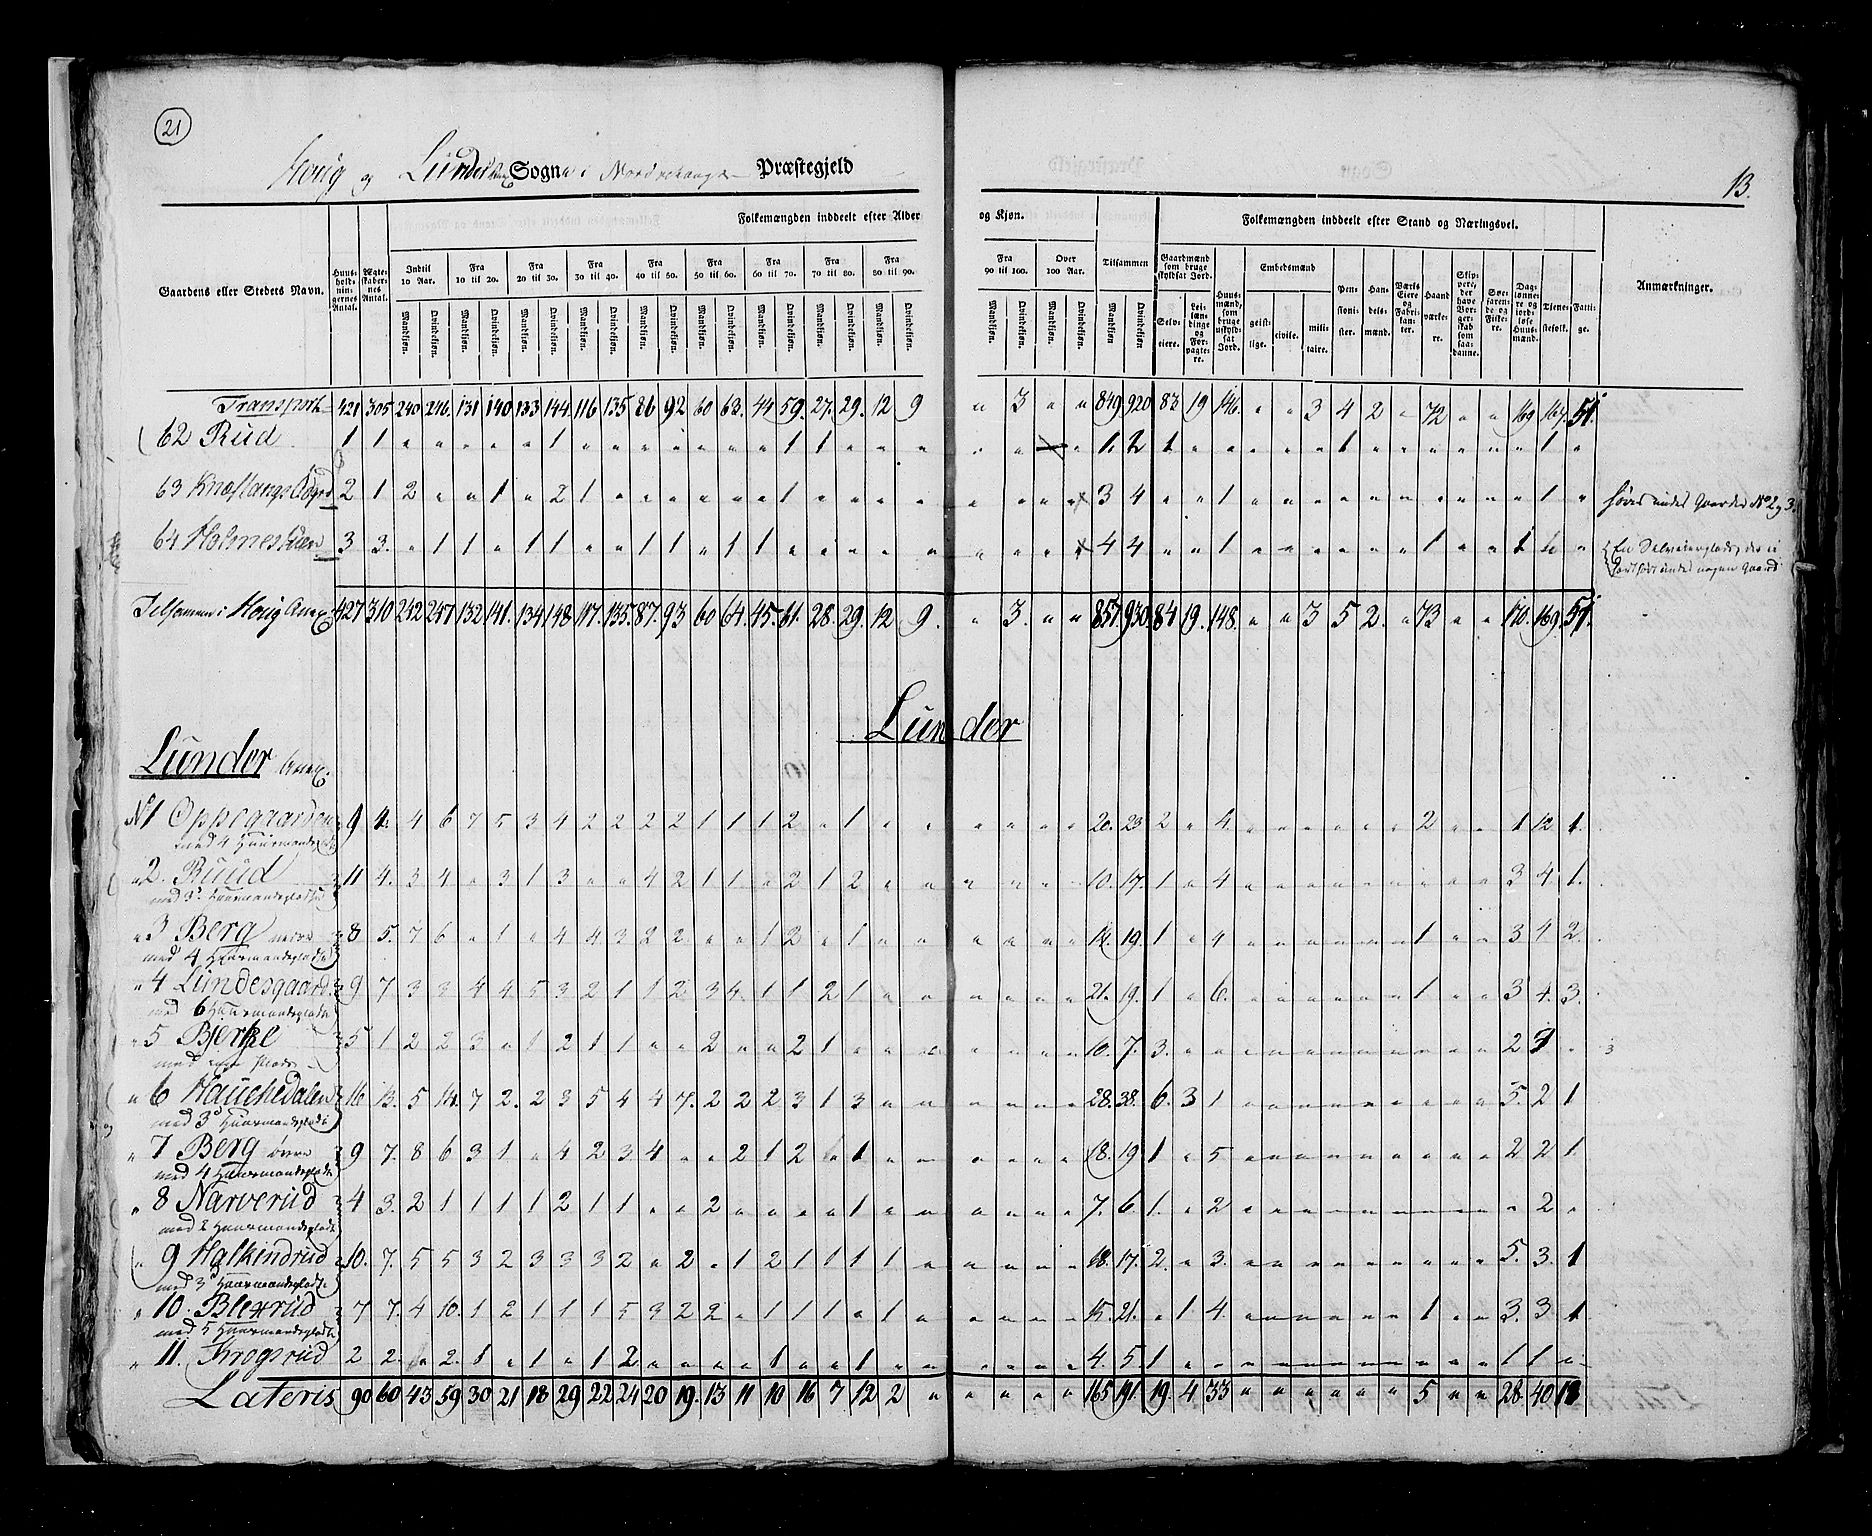 21
Houg og Lunder Sogne i Norderhougs Præstegjeld
13.
Folkemængden inddeelt efter Alder og Kjøn.
Folkemængden inddeelt efter Stand og Næringsvei.
Gaardens eller Stedets Navn.
Huusholdningernes Antal.
Ægteskabernes Antal.
Indtil 10 Aar.
Fra 10 til 20.
Fra 20 til 30.
Fra 30 til 40.
Fra 40 til 50.
Fra 50 til 60.
Fra 60 til 70.
Fra 70 til 80.
Fra 80 til 90.
Fra 90 til 100.
Over 100 Aar.
Tilsammen
Mandkjøn. Qvindekjøn.
Gaardmænd som bruge skyldsat Jord.
Selveiere.
Leilændinge og Forpagtere.
Huusmænd, som bruge uskyldsat Jord.
Embedsmænd
geistlige. civile. militaire.
Pensionister.
Handelsmænd.
Værks Eiere og Fabrikanter.
Haandværkere.
Skippere, der have Borgerskab som saadanne.
Søefarende og Fiskere.
Daglønnere og jordløse Huusmænd.
Tienestefolk.
Fattige.
Anmærkninger.
Transport 421 305 240 246. 131 140 133 144. 116 135 86 92 60 63. 44 59. 27. 29. 12 9 " 3 " " 849 920 83 19 146. " " 3 4 2 " 72 " " 169 167. 51.
62 Rud 1 1 " " " " " 1 " " " " " " 1 1 " " " " " " " 1. 2 1 " " " " " 1 " " " " " " 1 "
63 Knæstangs 2 1 2 " " 1 " 2 1 " " " " " " 1 " " " " " " " 3 4 " " 1 " " " " " " " " " " 1 "
64 Holmen 3 3. " 1 1 " 1 1 " " 1 1 " 1 1 " " " " " " " " 4 4 " " 1 " " " " " " 1 " " 1 1 "
Tilsammen i Houg Anex 427 310 242 247 132 141. 134 148 117. 135. 87. 93 60 64. 45. 61. 28. 29. 12 9. " 3. " " 857. 930. 84 19. 148. " " 3 5 2. " 73 " " 170. 169. 51.
Lunder
Lunder Anex.
No 1 Oppegaarden 9 4. 4 6 7 5 3 4 2 2 2 2 1 1 1 2 " 1 " " " " " " 20. 23 2 " 4. " " " " " " 2 " " 1 12 1.
med 4 Huusmandsplads
" 2. Ruud 11 4. 3 4 " 3 1 3 " " 4 2 1 1 " 2 1 2 " " " " " " 10. 17. 1 " 4 " " " " " " " " " 3 4 1.
med 3 Huusmandspladse
" 3 Berg nedre 8 5. 7 6 " 1 " 4 4 3 2 2 " " 1 2 " 1 " " " " " " 14. 19. 1 " 4 " " " " " " 1 " " 3 4 2
med 4 Huusmandspladse
" 4 Lundesgaard. 9 7 3 3 4 4 5 3 2 1 1 2 3 4. 1 1 2 1 " " " " " " 21. 19. 1 " 6. " " " " " " 1 " " 3 4. 3.
med 6 Huusmandspladse
" 5 Bjerke 5 1 2 2 3 " 1 2 1 1 " " 2 " " 2 1 " " " " " " 10. 7. 3. " " " " " " " " " " 2 3 "
" 6 Hauchedalen 16 13. 5 14. 7 2. 2 3 5 4 4 7. 2 2 2 3 1 3 " " " " " " 28. 38. 6. 3 1 " " " " " " " " " 5. 2 1
med 3 Huusmandspladse
" 7 Berg øvre 9 7. 8 6 3 1 " 4 2 3 4 " " 2 1 2 " 1 " " " " " " 18. 19 1 " 5 " " " " " " " " " 2 2 1
med 4 Huusmandspladse
" 8 Narverud 4 3. 2 1 1 1 1 2 1 1 " " 2 " " " " 1 " " " " " " 7. 6. 1. " 2 " " " " " " " " " " 2 "
med 2 Huusmandspladse
" 9 Halkindrud 10. 7. 5 5 3 2 3 3 3 2 " 2 " 1 2 1 1 1 1 " " " " " 18. 17. 2. " 3. " " " " " " " " " 5. 3. 1
med 3 Huusmandspladse
" 10. Blexrud 7 7. 4 10. 1 2 1 1 1 5 3 2 2 " 1 1 1 " 1 " " " " " 15. 21. " 1 4. " " " " " " 1 " " 3. 3. 1
med 5 Huusmandspladse
" 11. Krogsrud 2 2. " 2. 1 " 1 " 1 2 " " " " 1 " " 1 " " " " " " 4. 5. 1 " " " " " " " " " " " 1 1 "
Lateris 90 60 43 59 30 21 18 29 22 24 20 19. 13 11 10 16 7 12 2 " " " " " 165 191. 19. 4 33 " " " " " " 5 " " 28. 40. 12